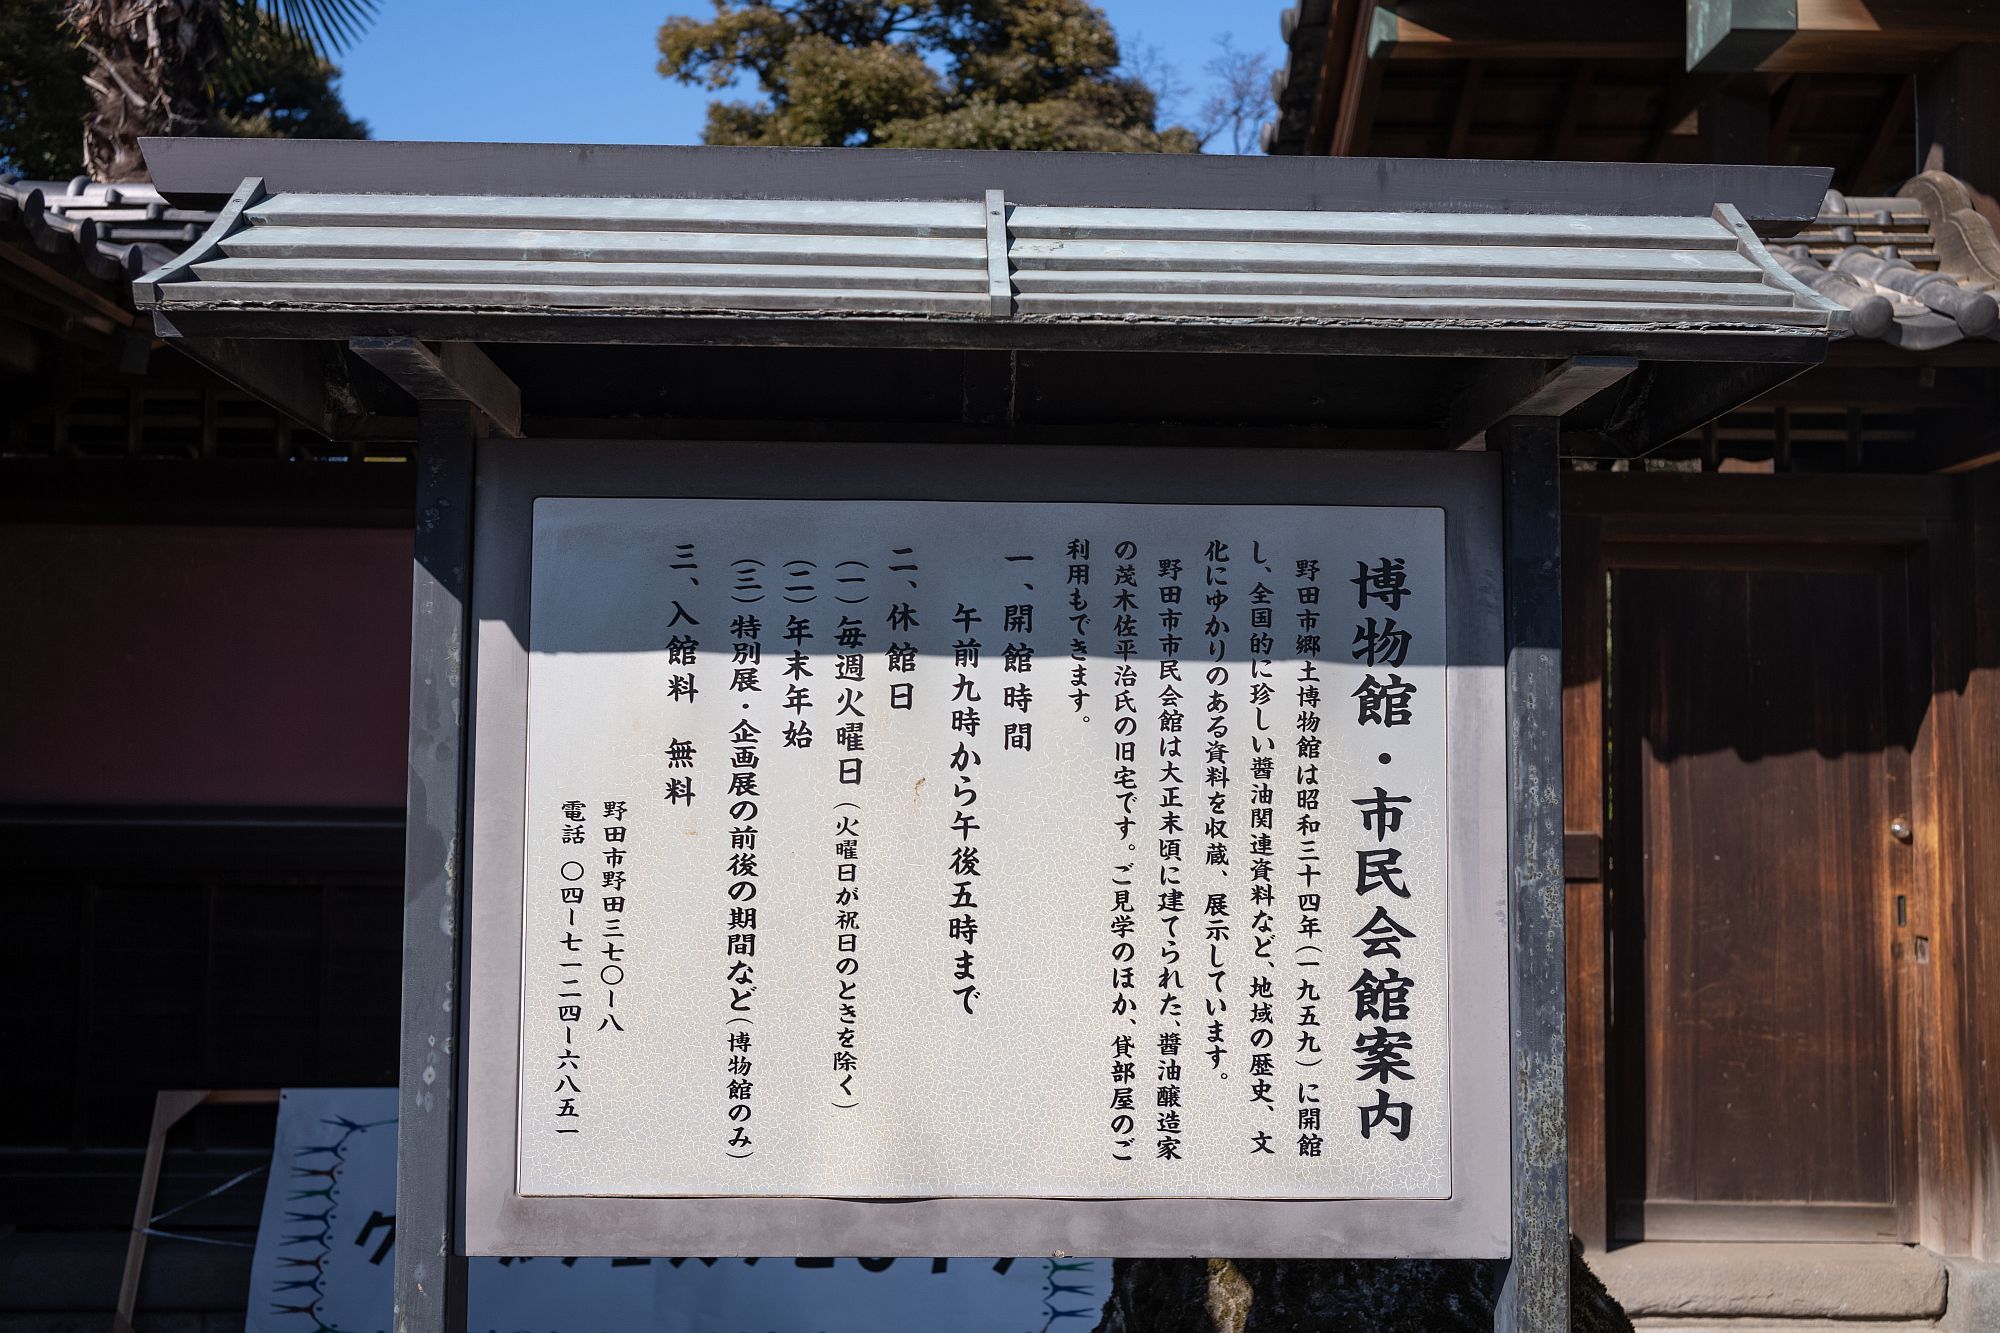 博物館・市民会館案内
野田市郷土博物館は昭和三十四年(一九五九)に開館
し、全国的に珍しい醬油関連資料など、地域の歴史、文
化にゆかりのある資料を収蔵、展示しています。
野田市市民会館は大正末頃に建てられた、醬油醸造家
の茂木佐平治氏の旧宅です。ご見学のほか、貸部屋のご
利用もできます。
一、開館時間
午前九時から午後五時まで
二、休館日
(一)毎週火曜日(火曜日が祝日のときを除く)
(二)年末年始
(三)特別展・企画展の前後の期間など(博物館のみ)
三、入館料 無料
野田市野田三七〇ー八
電話 〇四ー七一二四ー六八五一